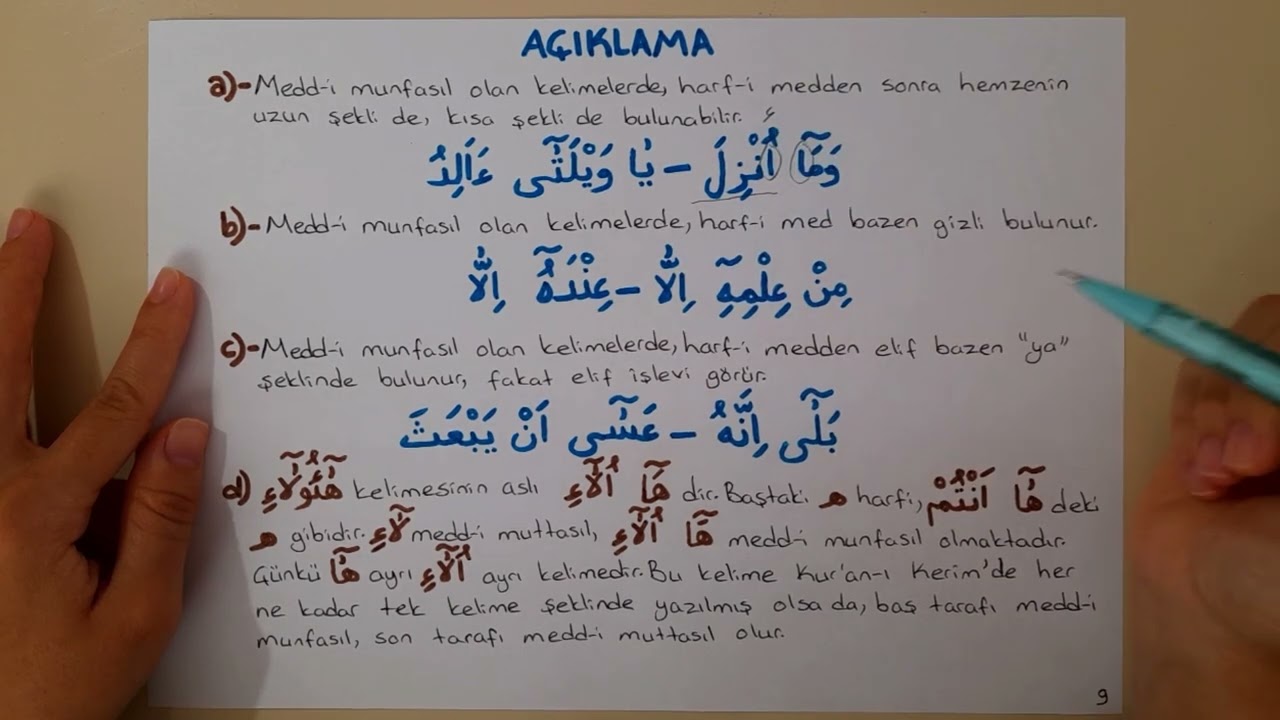 AÇIKLAMA
a)- Medd-i munfasıl olan kelimelerde, harf-i medden sonra hemzenin
uzun şekli de, kısa şekli de bulunabilir. ء
وَمَٓا اُنْزِلَ – يَا وَيْلَتٰٓى ءَاَلِدُ
b)- Medd-i munfasıl olan kelimelerde, harf-i med bazen gizli bulunur.
مِنْ عِلْمِهٖٓ اِلَّا – عِنْدَهُٓ اِلَّا
c)- Medd-i munfasıl olan kelimelerde, harf-i medden elif bazen "ya"
şeklinde bulunur, fakat elif işlevi görür.
بَلٰٓى اِنَّهُ – عَسٰٓى اَنْ يَبْعَثَ
d) هٰٓؤُلَٓاءِ kelimesinin aslı هَٓا اُلَٓاءِ dir. Baştaki هـ harfi, هَٓا اَنْتُمْ deki
هـ gibidir. لَٓاءِ medd-i muttasıl, هَٓا اُلَٓاءِ medd-i munfasıl olmaktadır.
Çünkü هَٓا ayrı اُلَٓاءِ ayrı kelimedir. Bu kelime Kur'an-ı Kerim'de her
ne kadar tek kelime şeklinde yazılmış olsa da, baş tarafı medd-i
munfasıl, son tarafı medd-i muttasıl olur.
9